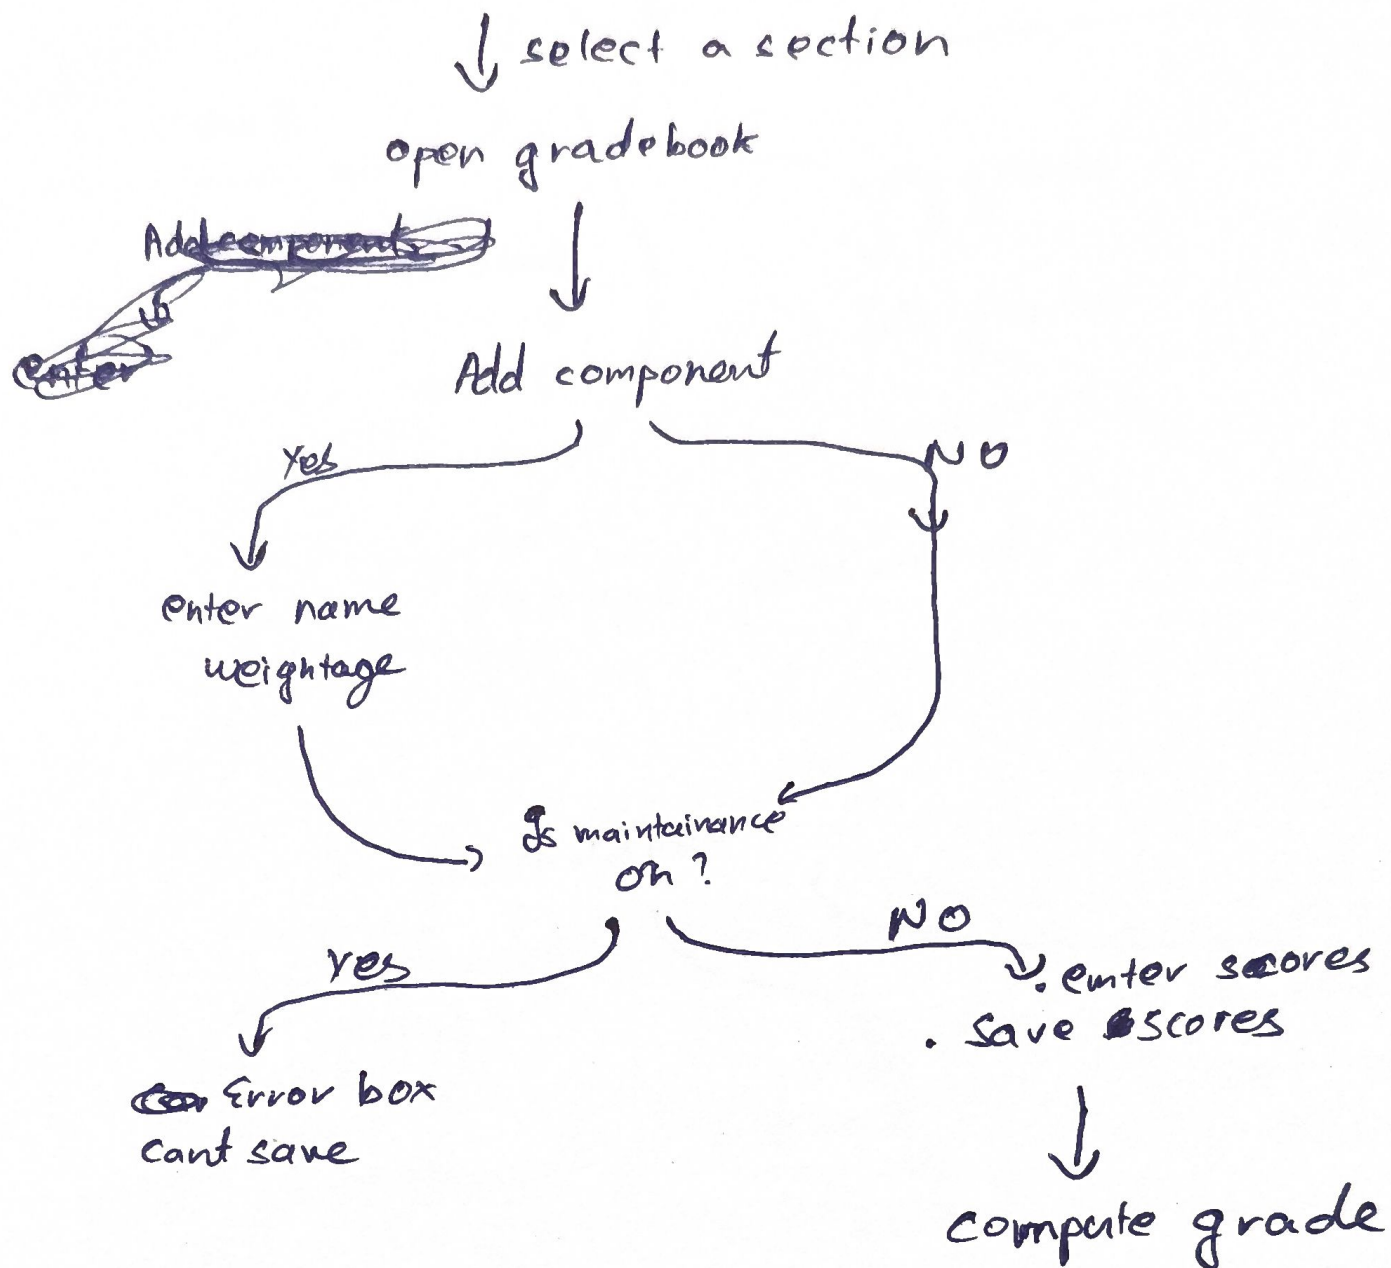 select a section
open gradebook
Add component
enter
Add component
Yes
NO
enter name
weightage
Is maintainance
on?
Yes
NO
. enter scores
. save scores
Error box
cant save
compute grade